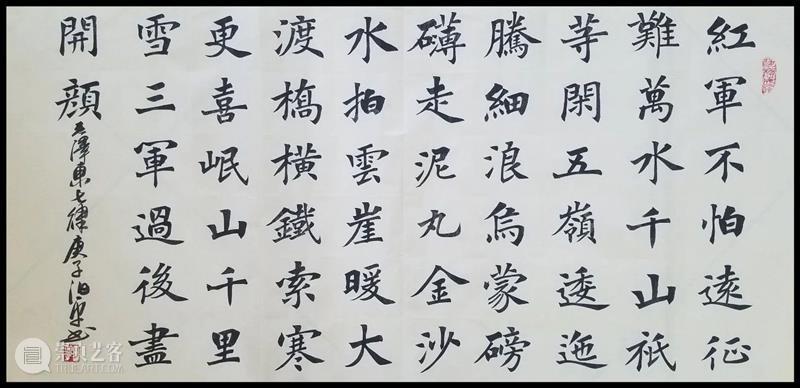 紅軍不怕遠征
難萬水千山祇
等閑五嶺逶迤
騰細浪烏蒙磅
礴走泥丸金沙
水拍雲崖暖大
渡橋橫鐵索寒
更喜岷山千里
雪三軍過後盡
開顏
毛澤東七律庚子泊书
崇真艺客
TRUEART.COM